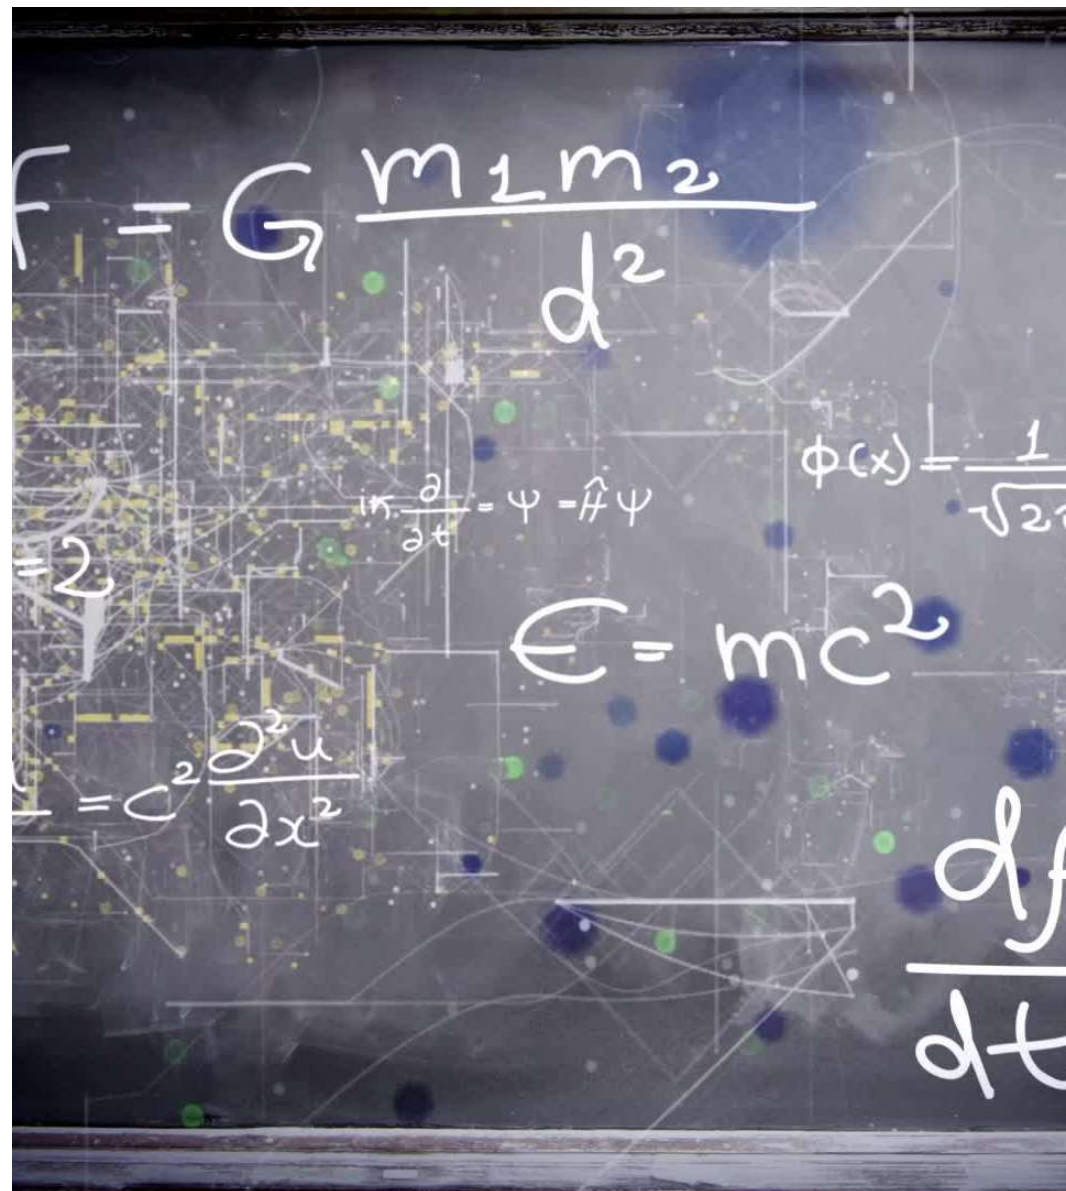 F = G m1m2
d²
Φ(x) = 1
√2
iħ ∂ = Ψ = Ĥ Ψ
∂t
=2
E = mc²
= c² ∂²u
∂x²
df
dt